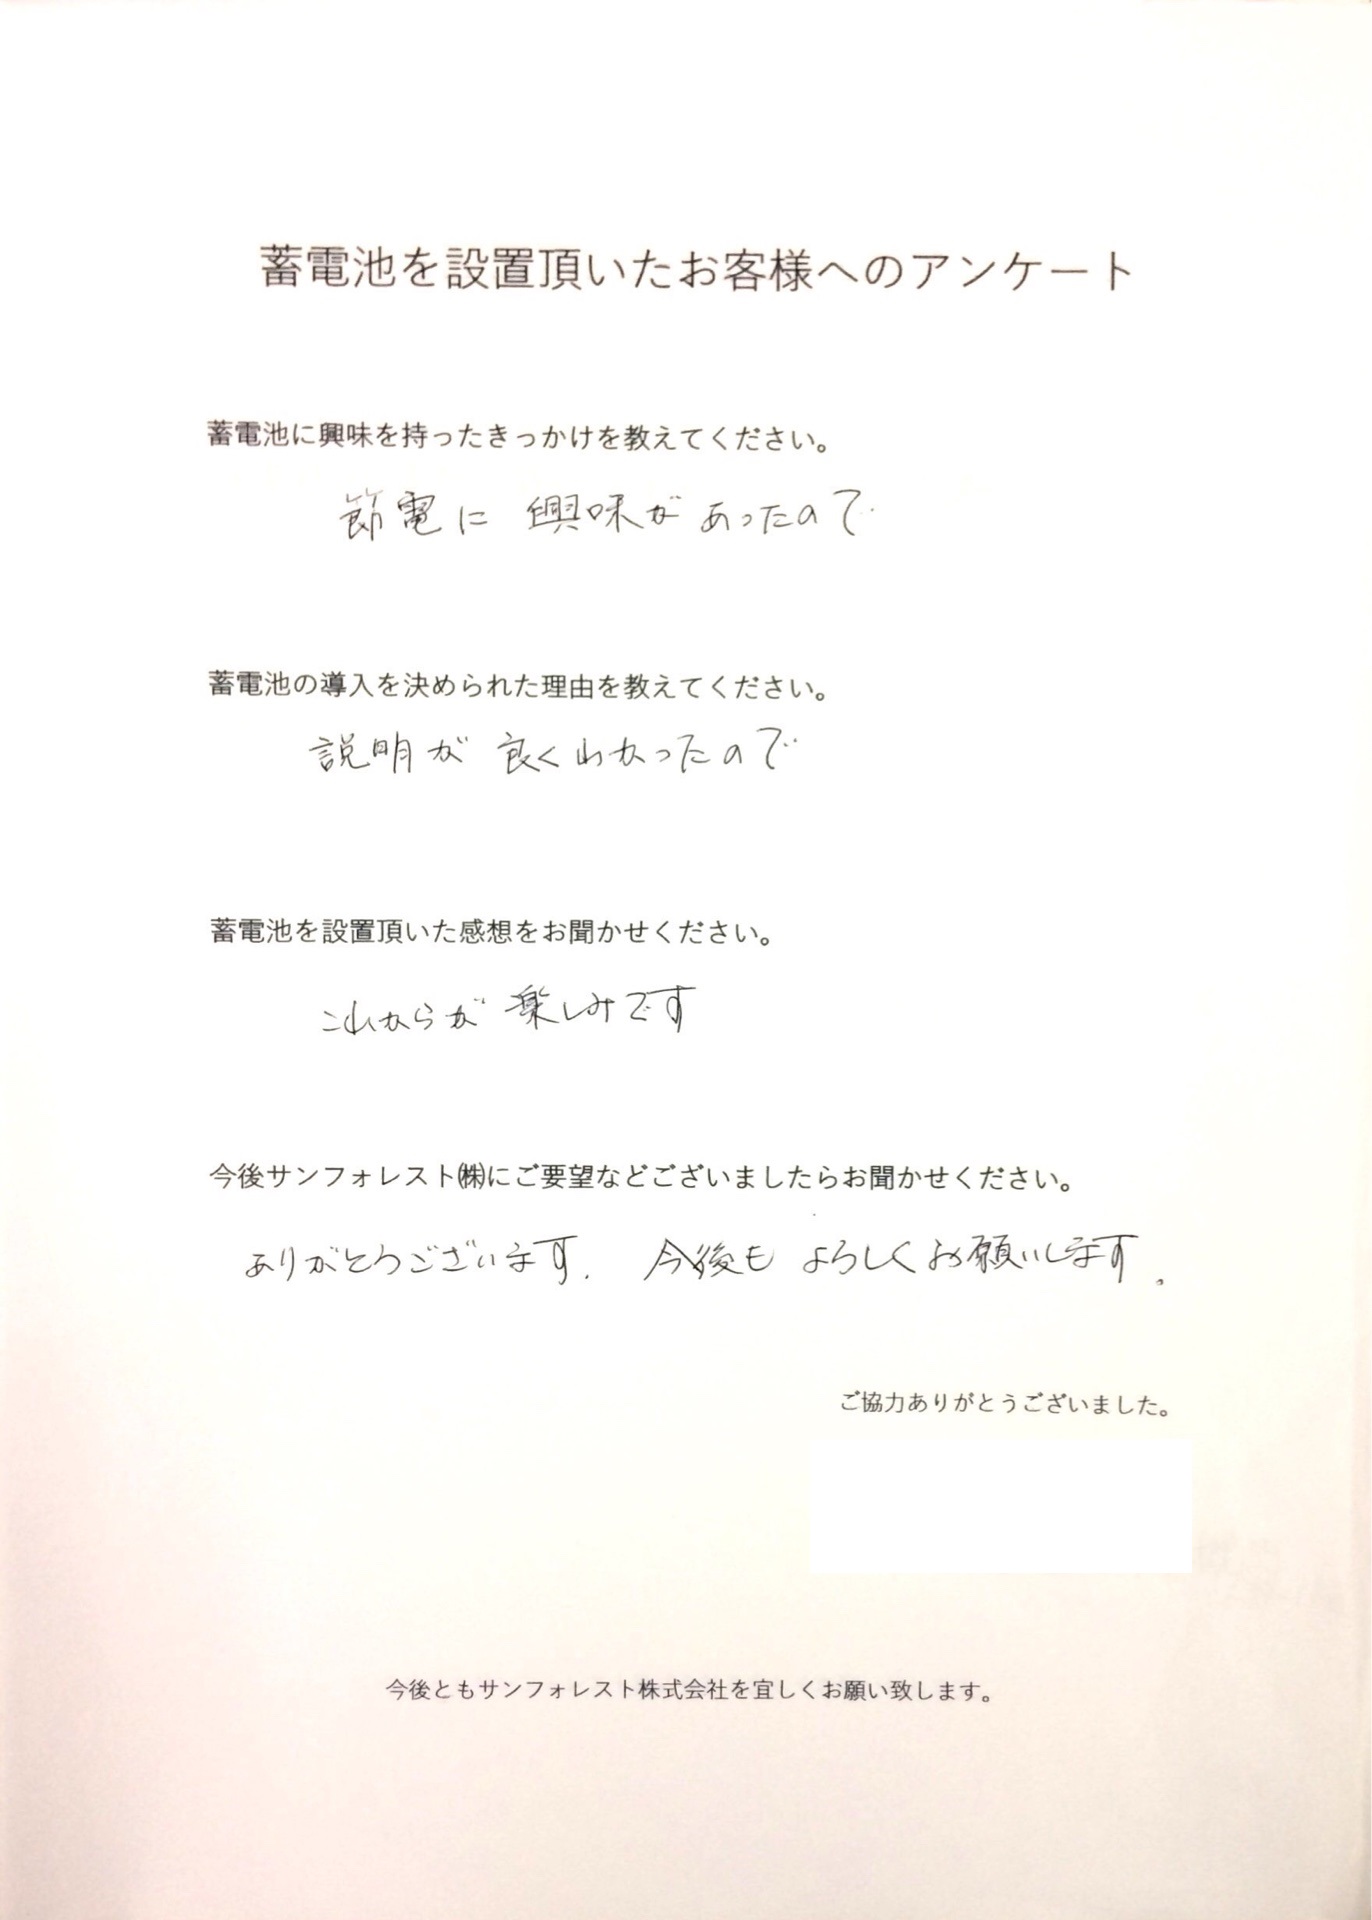 蓄電池を設置頂いたお客様へのアンケート
蓄電池に興味を持ったきっかけを教えてください。
節電に 興味が あったので
蓄電池の導入を決められた理由を教えてください。
説明が 良くわかったので
蓄電池を設置頂いた感想をお聞かせください。
これからが 楽しみです
今後サンフォレスト㈱にご要望などございましたらお聞かせください。
ありがとうございます. 今後も よろしくお願いします。
ご協力ありがとうございました。
今後ともサンフォレスト株式会社を宜しくお願い致します。